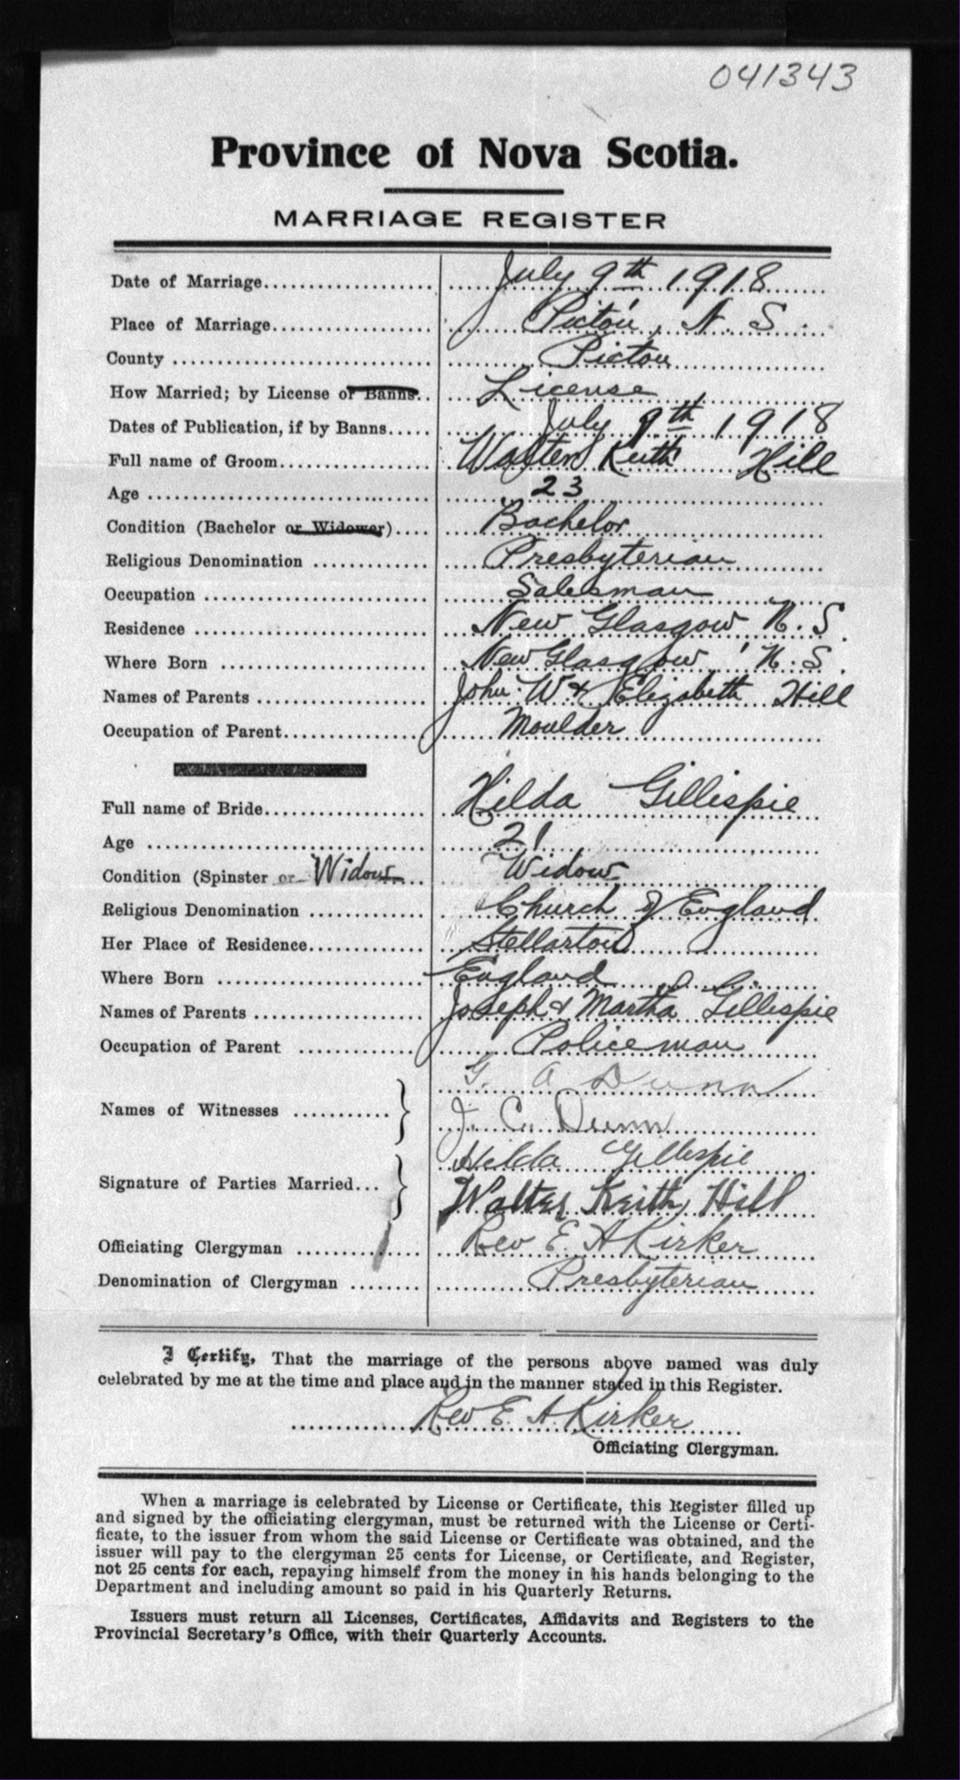 041343
Province of Nova Scotia.
MARRIAGE REGISTER
Date of Marriage.................... July 9th 1918
Place of Marriage................... Pictou, N. S.
County ........................... Pictou
How Married; by License or Banns.. License
Dates of Publication, if by Banns..... July 9th 1918
Full name of Groom.................. Walter Keith Hill
Age ............................... 23
Condition (Bachelor or Widower).... Bachelor
Religious Denomination ............. Presbyterian
Occupation ........................ Salesman
Residence ......................... New Glasgow N. S.
Where Born ....................... New Glasgow, N. S.
Names of Parents ................... John W & Elizabeth Hill
Occupation of Parent................ Moulder
Full name of Bride................... Hilda Gillispie
Age ............................... 21
Condition (Spinster or Widow.... Widow
Religious Denomination ............. Church of England
Her Place of Residence............. Stellarton
Where Born ....................... England
Names of Parents ................... Joseph & Martha Gillespie
Occupation of Parent .............. Policeman
G. A Dunn
Names of Witnesses ...........
J. C. Dunn
Hilda Gillespie
Signature of Parties Married...
Walter Keith Hill
Officiating Clergyman ............. Rev E. A Kirker
Denomination of Clergyman ........ Presbyterian
I Certify, That the marriage of the persons above named was duly
celebrated by me at the time and place and in the manner stated in this Register.
Rev E. A. Kirker
Officiating Clergyman.
When a marriage is celebrated by License or Certificate, this Register filled up
and signed by the officiating clergyman, must be returned with the License or Certi-
ficate, to the issuer from whom the said License or Certificate was obtained, and the
issuer will pay to the clergyman 25 cents for License, or Certificate, and Register,
not 25 cents for each, repaying himself from the money in his hands belonging to the
Department and including amount so paid in his Quarterly Returns.
Issuers must return all Licenses, Certificates, Affidavits and Registers to the
Provincial Secretary's Office, with their Quarterly Accounts.